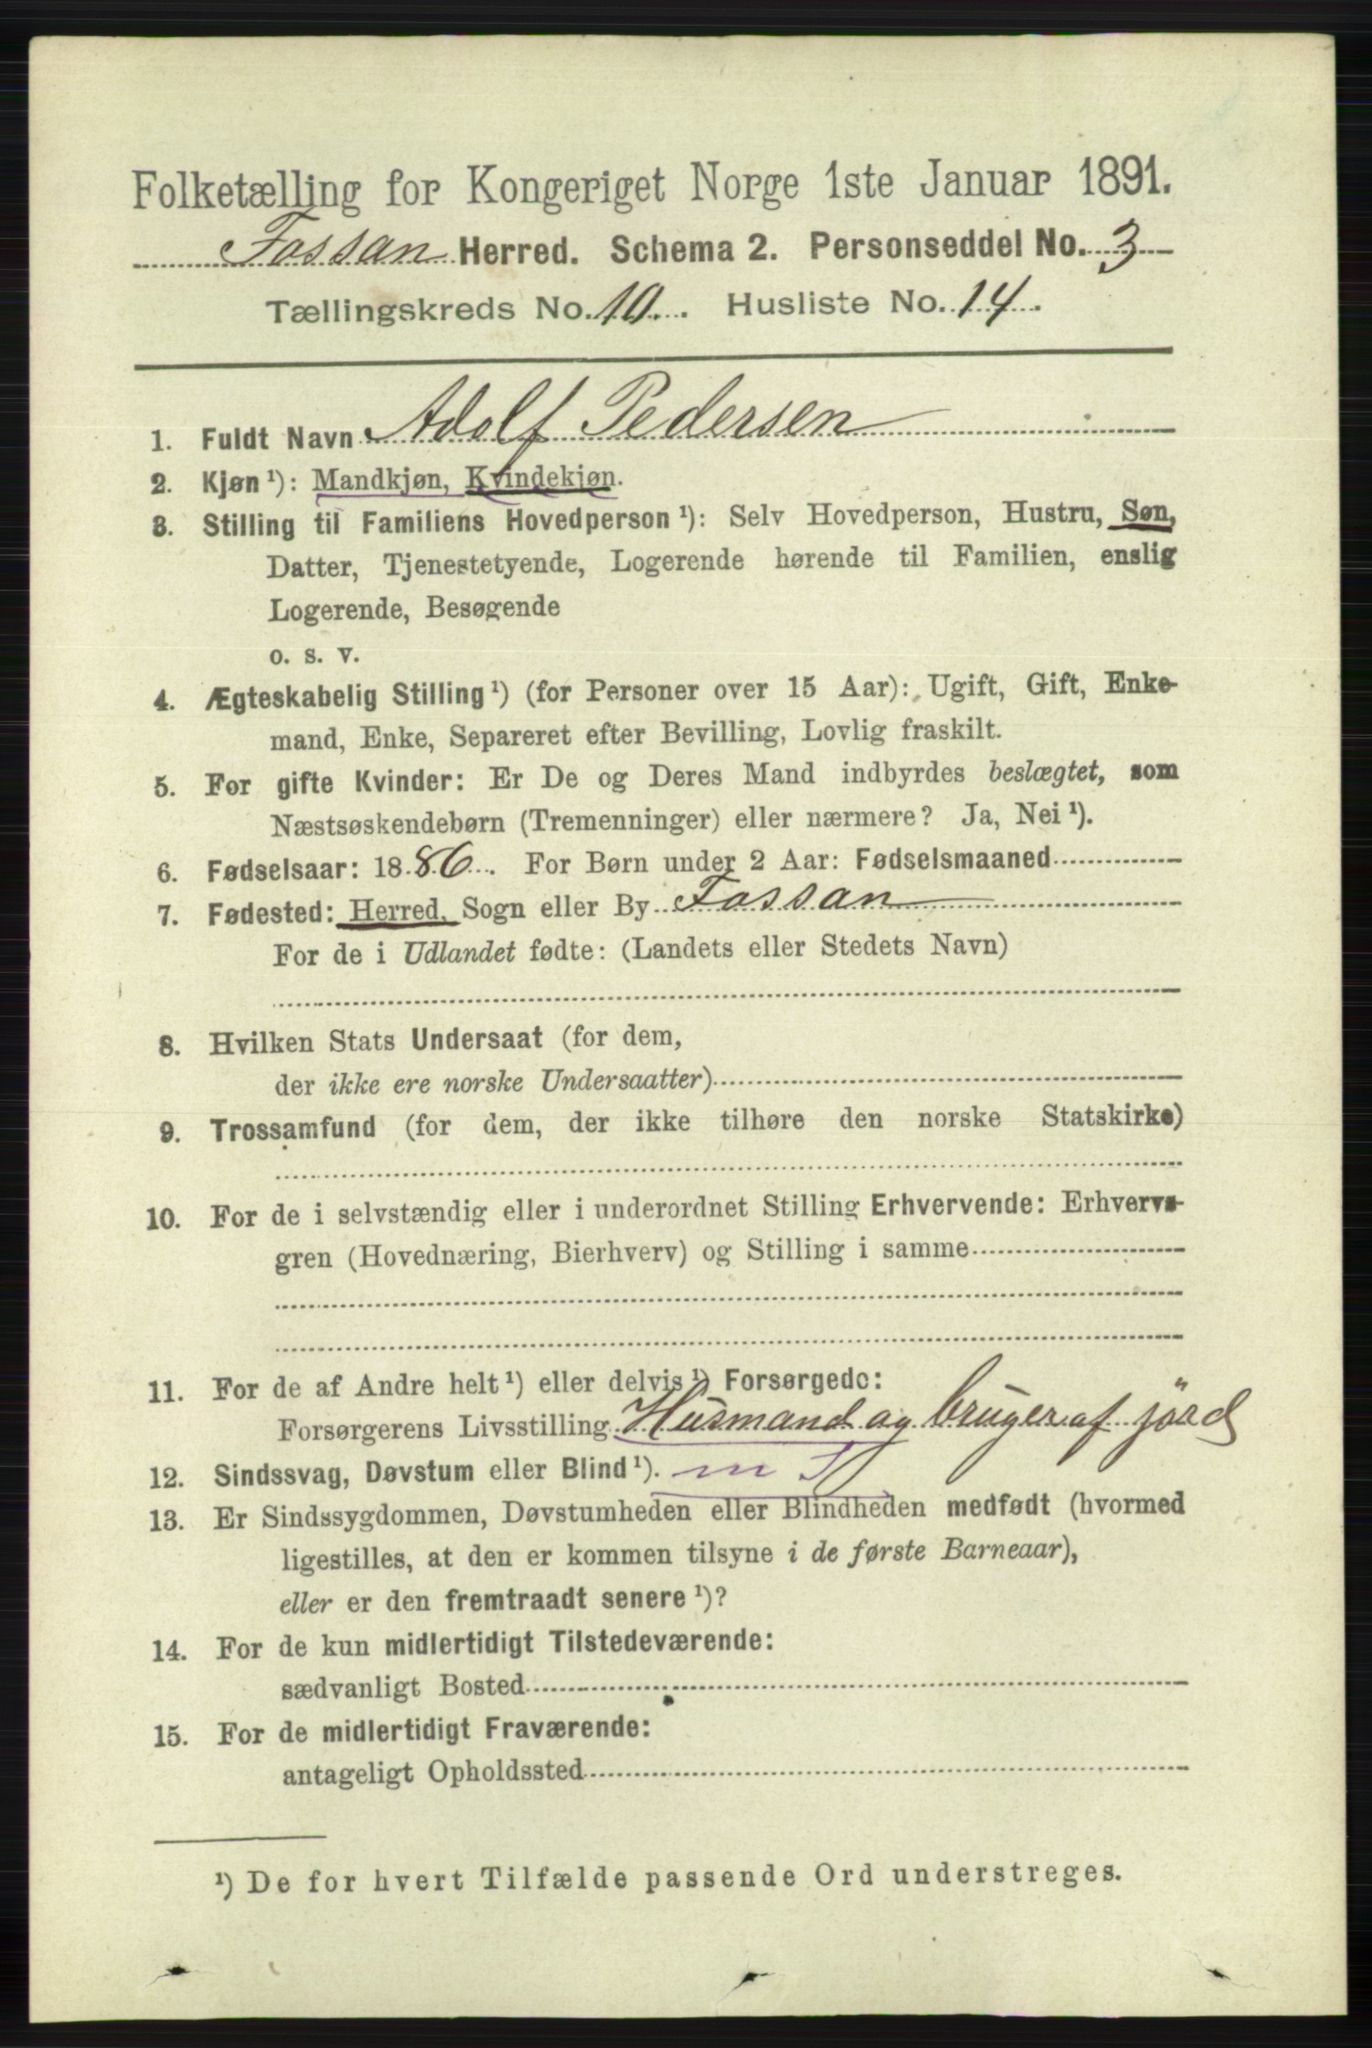 Folketælling for Kongeriget Norge 1ste Januar 1891.
Fossan Herred. Schema 2. Personseddel No. 3
Tællingskreds No. 10. Husliste No. 14.
1. Fuldt Navn Adolf Pedersen
2. Kjøn ¹): Mandkjøn, Kvindekjøn.
3. Stilling til Familiens Hovedperson ¹): Selv Hovedperson, Hustru, Søn,
Datter, Tjenestetyende, Logerende hørende til Familien, enslig
Logerende, Besøgende
o. s. v.
4. Ægteskabelig Stilling ¹) (for Personer over 15 Aar): Ugift, Gift, Enke-
mand, Enke, Separeret efter Bevilling, Lovlig fraskilt.
5. For gifte Kvinder: Er De og Deres Mand indbyrdes beslægtet, som
Næstsøskendebørn (Tremenninger) eller nærmere? Ja, Nei ¹).
6. Fødselsaar: 1886. For Børn under 2 Aar: Fødselsmaaned
7. Fødested: Herred, Sogn eller By Fossan
For de i Udlandet fødte: (Landets eller Stedets Navn)
8. Hvilken Stats Undersaat (for dem,
der ikke ere norske Undersaatter)
9. Trossamfund (for dem, der ikke tilhøre den norske Statskirke)
10. For de i selvstændig eller i underordnet Stilling Erhvervende: Erhvervs-
gren (Hovednæring, Bierhverv) og Stilling i samme
11. For de af Andre helt ¹) eller delvis ¹) Forsørgede:
Forsørgerens Livsstilling Husmand og bruger af jörd
12. Sindssvag, Døvstum eller Blind ¹). m
13. Er Sindssygdommen, Døvstumheden eller Blindheden medfødt (hvormed
ligestilles, at den er kommen tilsyne i de første Barneaar),
eller er den fremtraadt senere ¹)?
14. For de kun midlertidigt Tilstedeværende:
sædvanligt Bosted
15. For de midlertidigt Fraværende:
antageligt Opholdssted
¹) De for hvert Tilfælde passende Ord understreges.